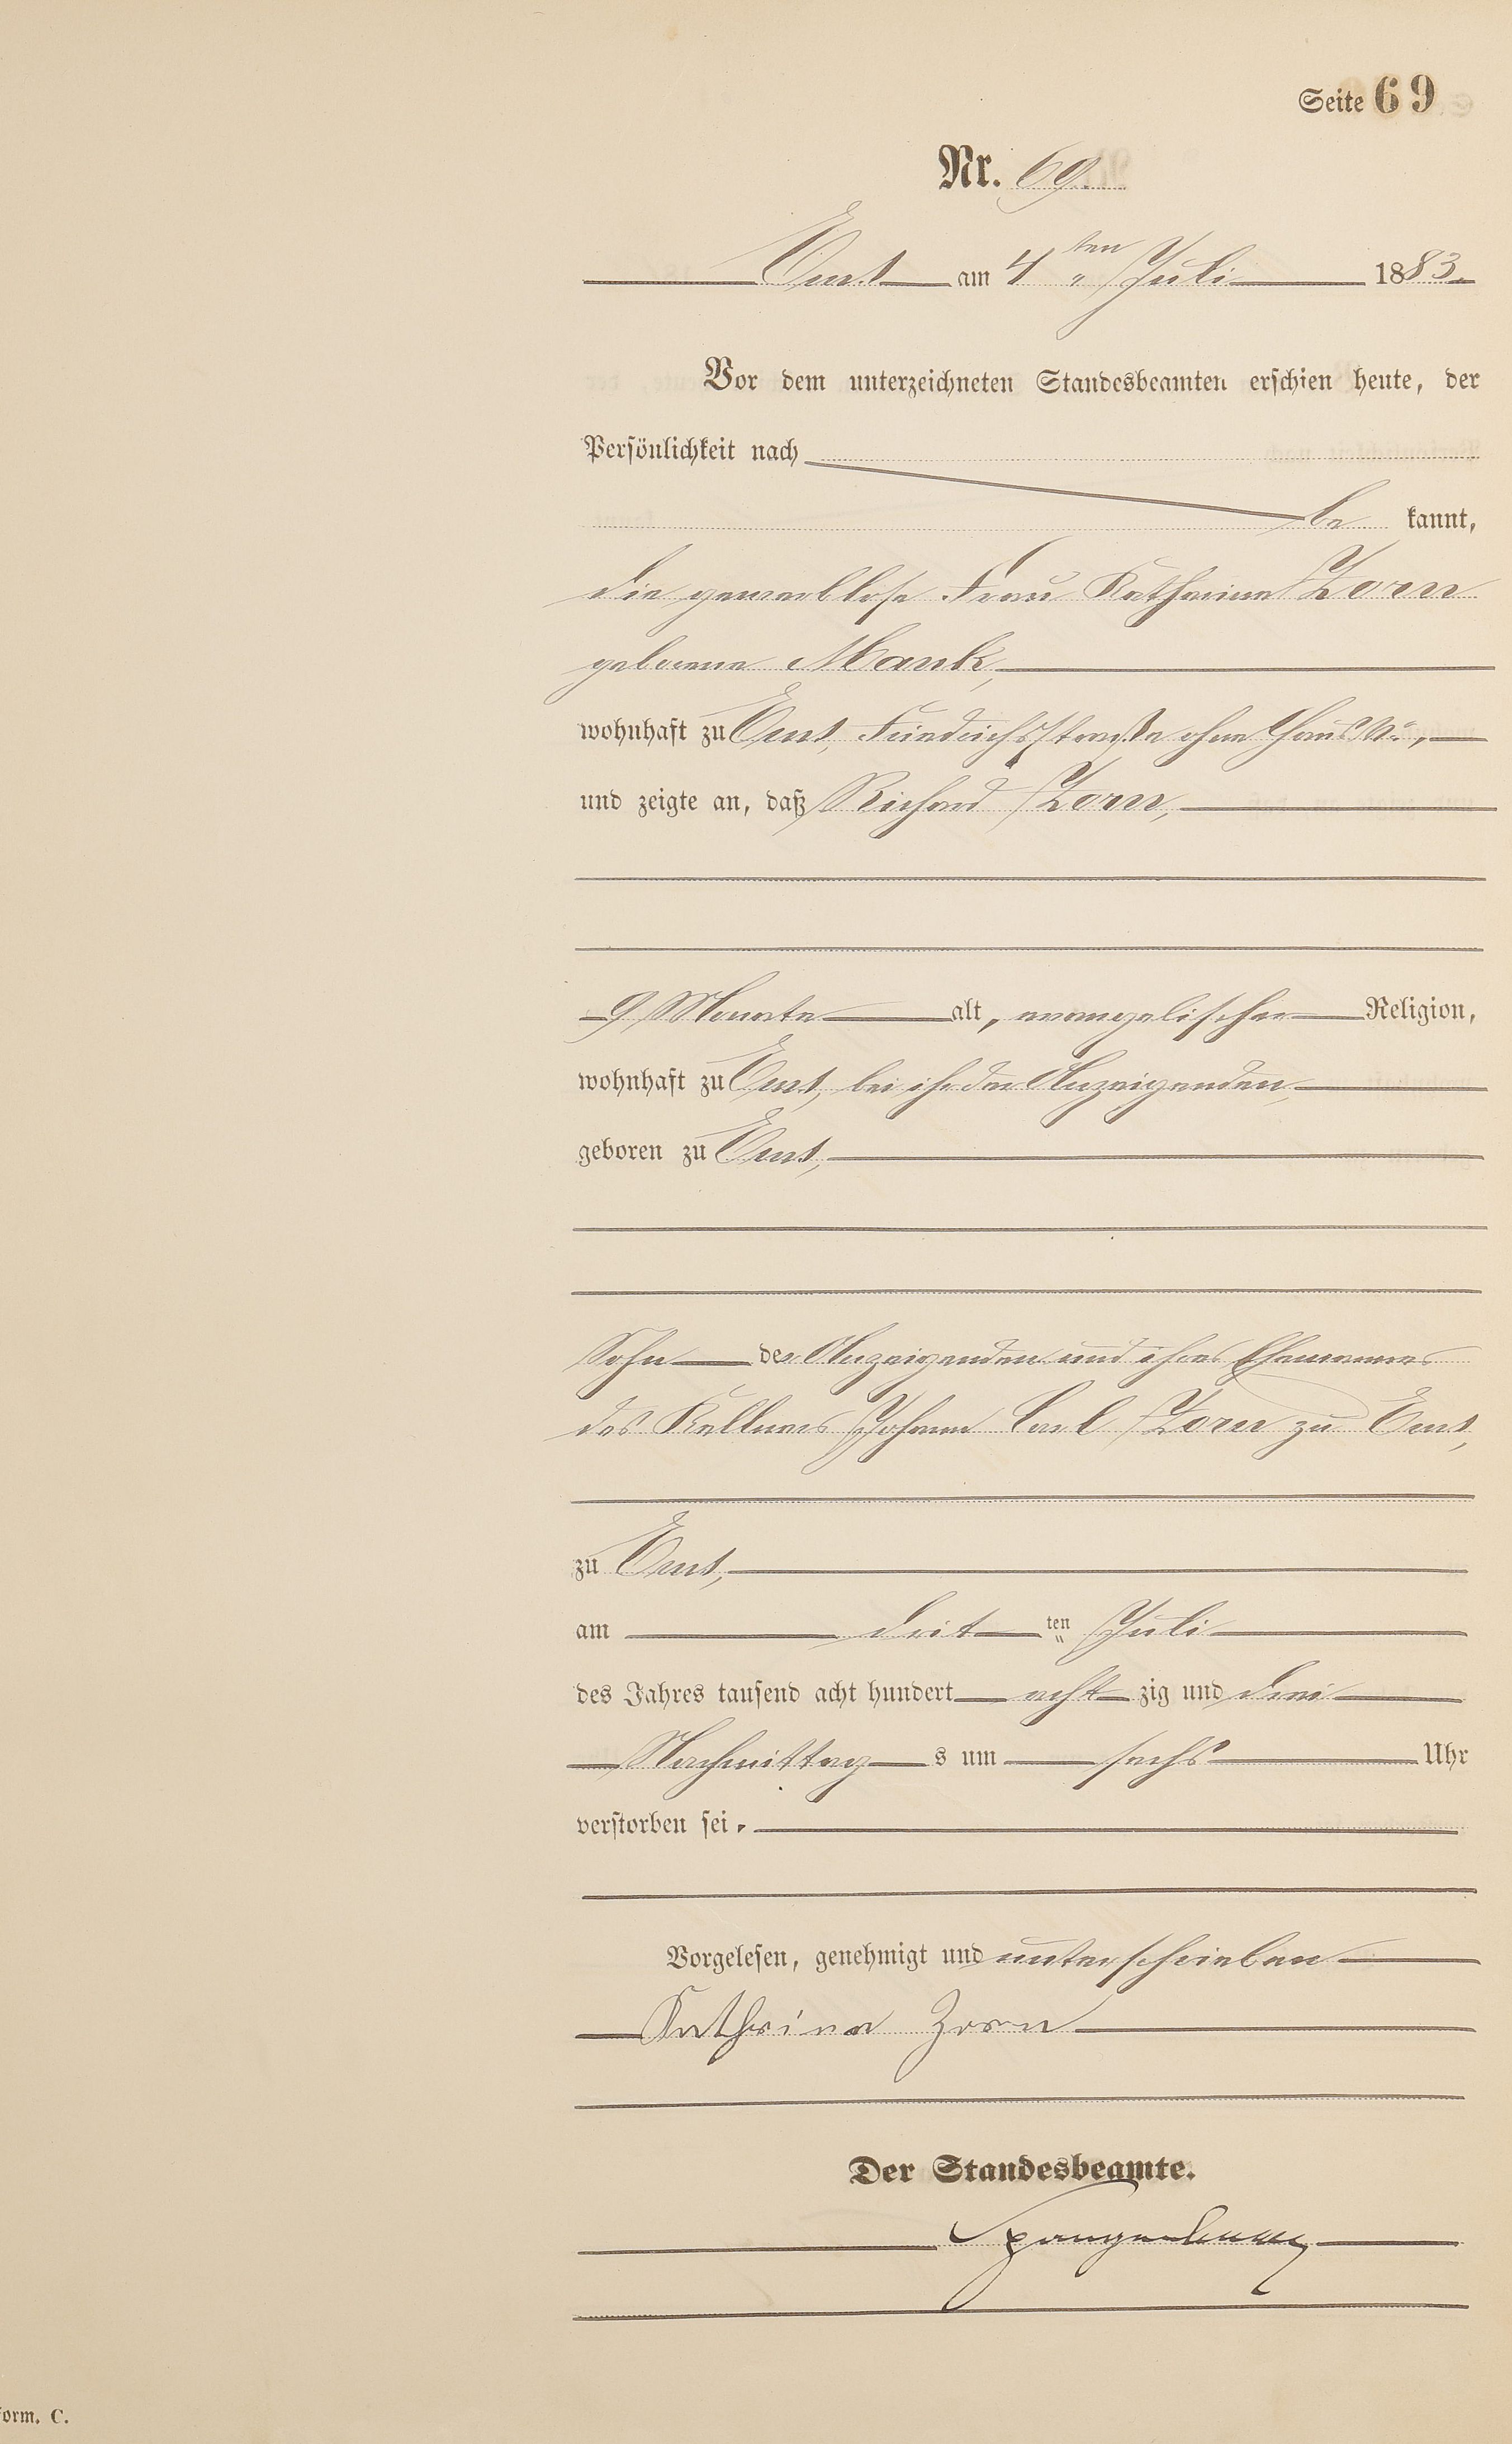 Seite 69
Nr. 69.
Ems am 4ten Juli 1883.
Vor dem unterzeichneten Standesbeamten erschien heute, der
Persönlichkeit nach
be kannt,
die gewerblose Frau Katharina Zorn
geborene Mank,
wohnhaft zu Ems, Friedrichsstraße ohne Haus No.,
und zeigte an, daß Richard Zorn,
9 Monate alt, evangelischer Religion,
wohnhaft zu Ems, bei ihr der Anzeigenden,
geboren zu Ems,
Sohn der Anzeigenden und ihres Ehemannes
des Kellners Johann Carl Zorn zu Ems,
zu Ems,
am drit ten Juli
des Jahres tausend acht hundert acht zig und drei
Nachmittag s um sechs Uhr
verstorben sei.
Vorgelesen, genehmigt und unterschrieben
Kathrina Zorn
Der Standesbeamte.
Spangenberg
form. C.